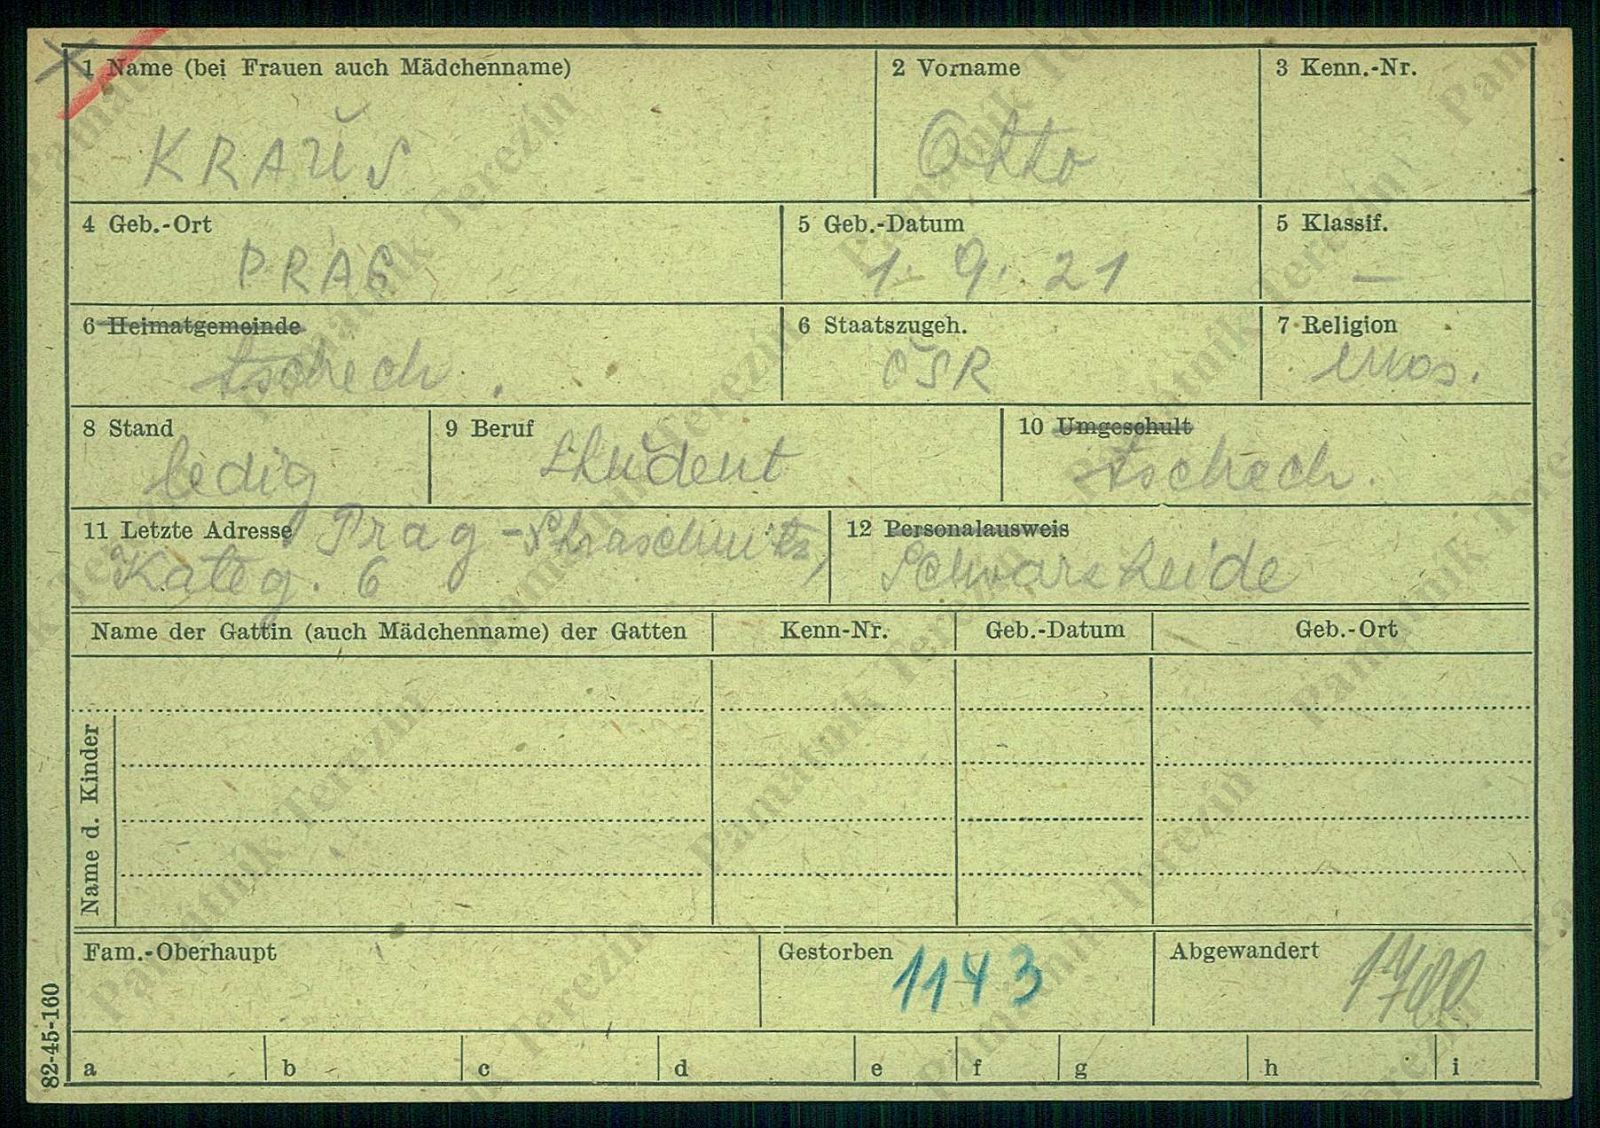 1 Name (bei Frauen auch Mädchenname)
2 Vorname
3 Kenn.-Nr.
KRAUS
Otto
4 Geb.-Ort
5 Geb.-Datum
5 Klassif.
PRAG
1. 9. 21
—
6 Heimatgemeinde
6 Staatszugeh.
7 Religion
tschech.
ČSR
Mos.
8 Stand
9 Beruf
10 Umgeschult
ledig
Student
tschech.
11 Letzte Adresse Prag - Straschnitz,
Kateg. 6
12 Personalausweis
Schwarzheide
Name der Gattin (auch Mädchenname) der Gatten
Kenn-Nr.
Geb.-Datum
Geb.-Ort
Name d. Kinder
Fam.-Oberhaupt
Gestorben
1143
Abgewandert
82-45-160
a b c d e f g h i
Památník Terezín